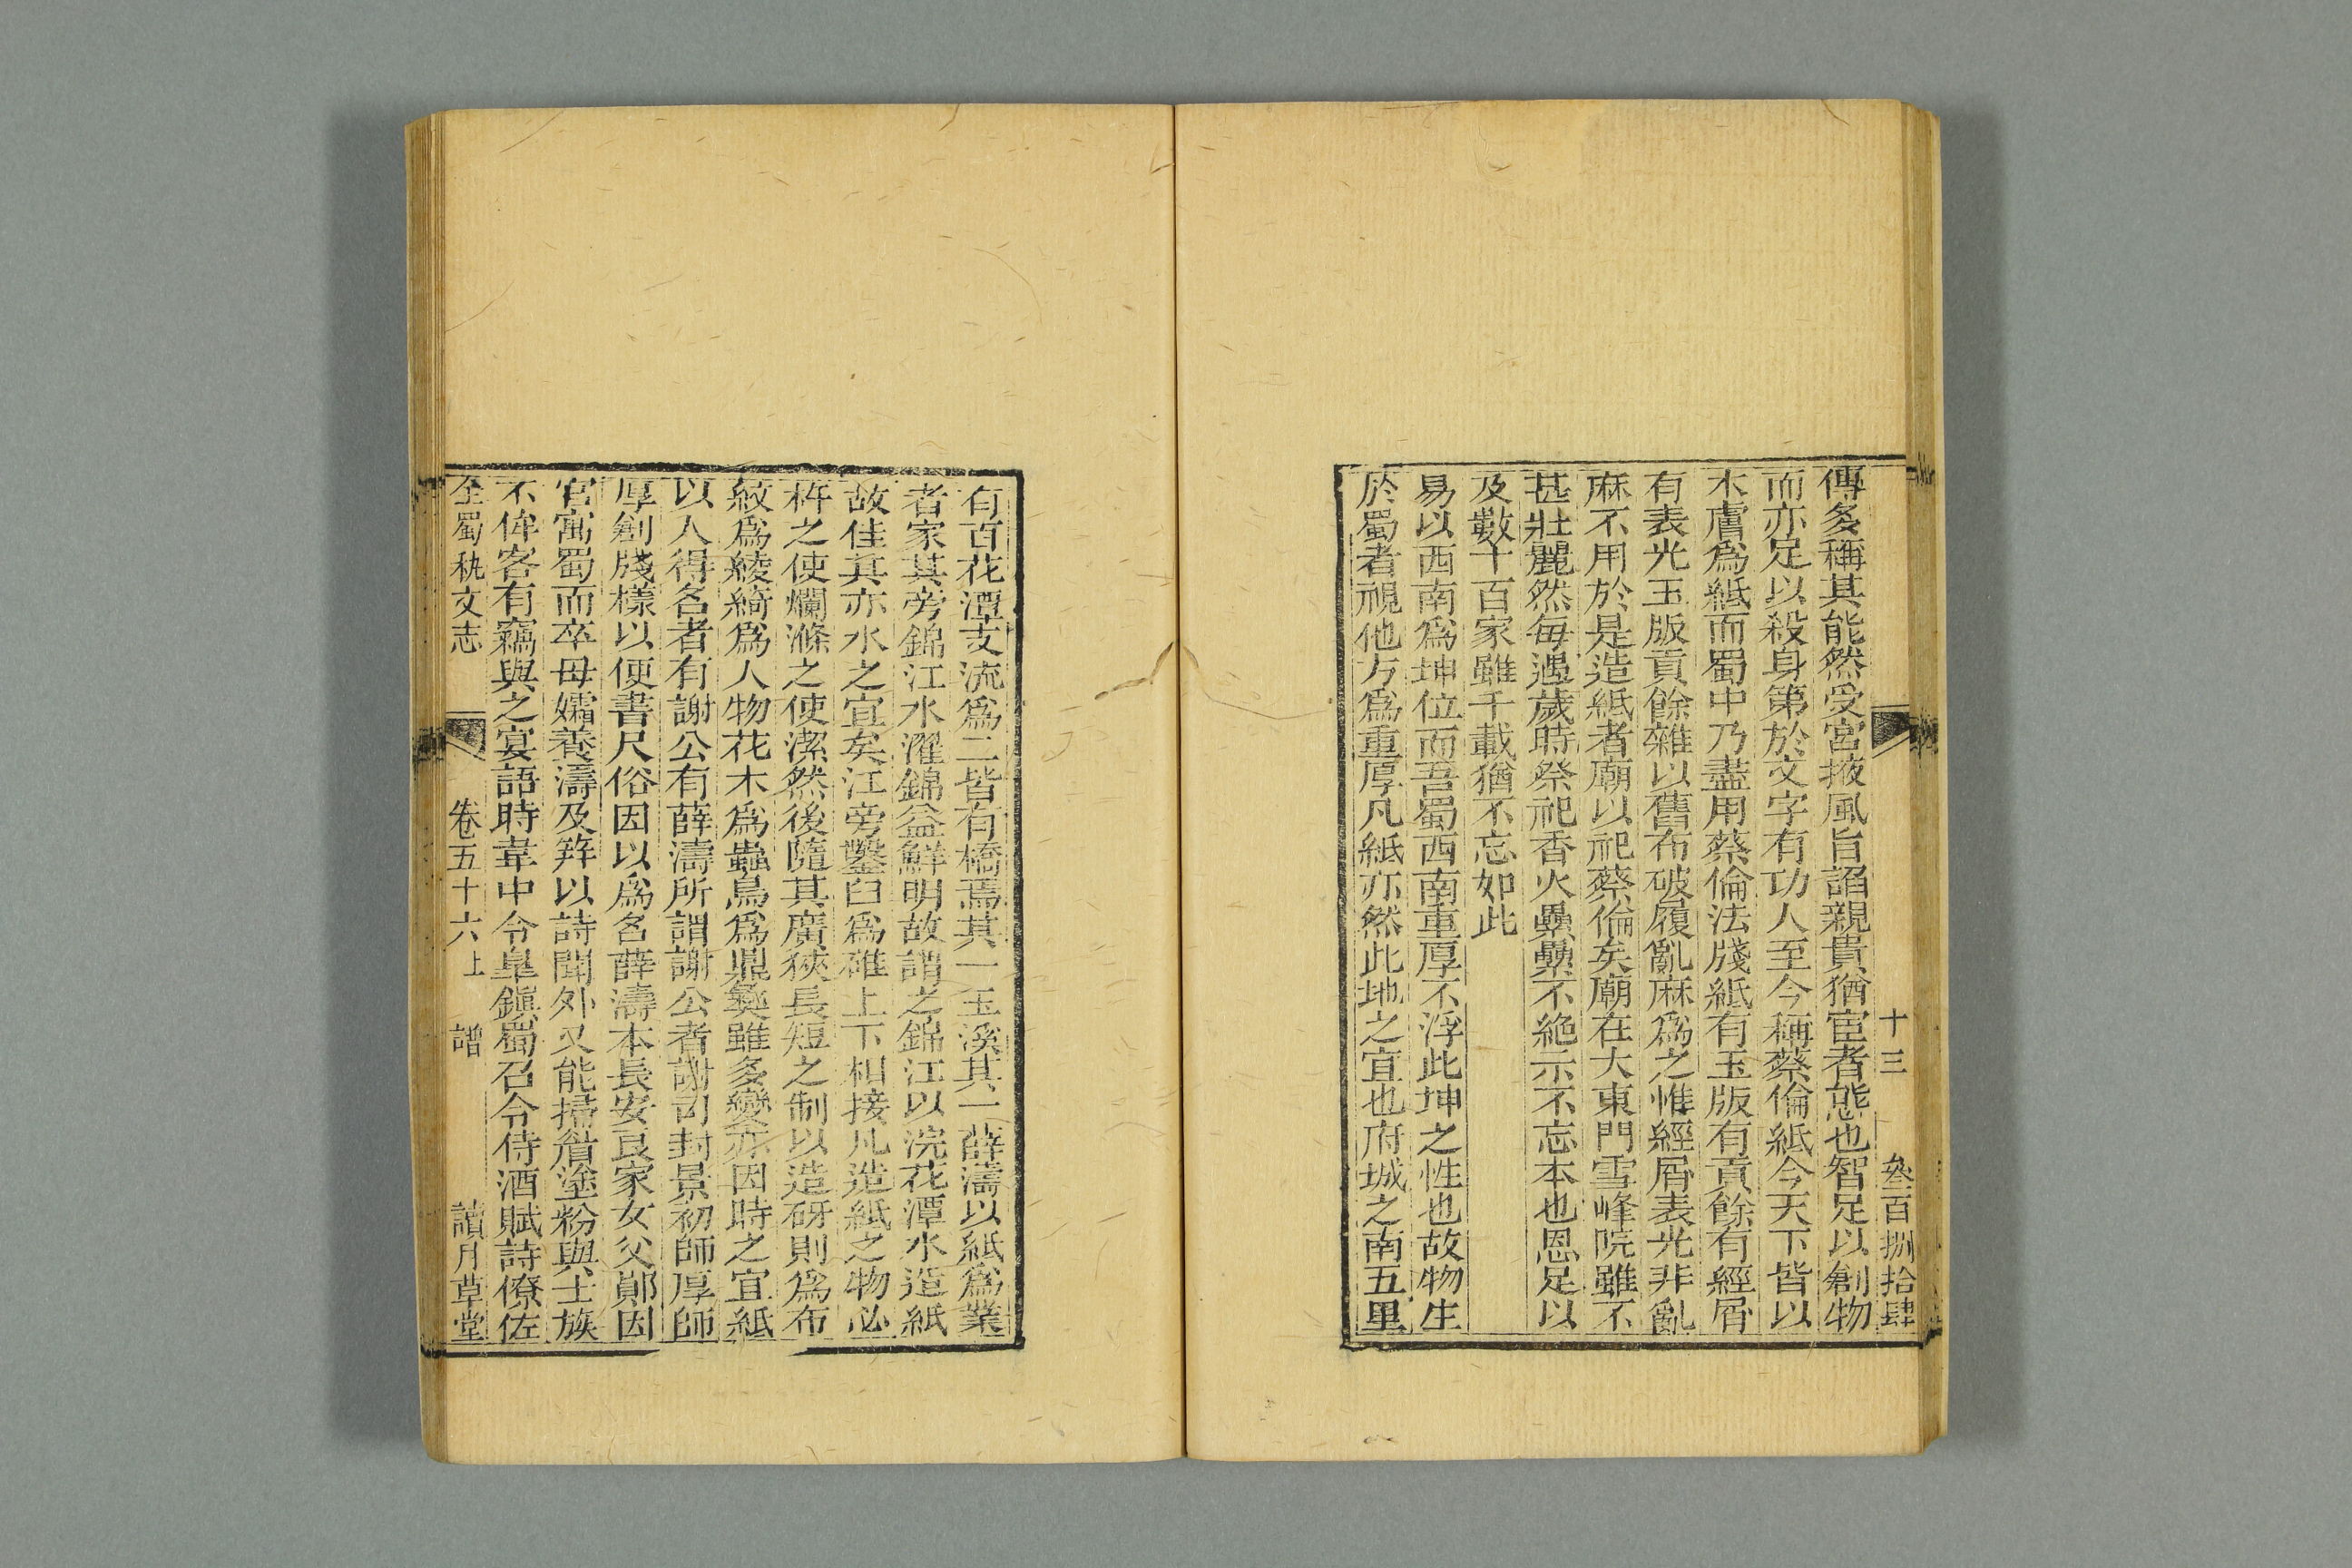 十三 叄百捌拾肆
傳多稱其能然受宮掖風旨誣親貴猶宦者態也智足以創物
而亦足以殺身第於文字有功人至今稱蔡倫紙今天下皆以
木膚爲紙而蜀中乃盡用蔡倫法牋紙有玉版有貢餘有經屑
有表光玉版貢餘雜以舊布破履亂麻爲之惟經屑表光非亂
麻不用於是造紙者廟以祀蔡倫矣廟在大東門雪峰院雖不
甚壯麗然每遇歲時祭祀香火纍纍不絶示不忘本也恩足以
及數十百家雖千載猶不忘如此
易以西南爲坤位而吾蜀西南重厚不浮此坤之性也故物生
於蜀者視他方爲重厚凡紙亦然此地之宜也府城之南五里
有百花潭支流爲二皆有橋焉其一玉溪其一薛濤以紙爲業
者家其旁錦江水濯錦益鮮明故謂之錦江以浣花潭水造紙
故佳其亦水之宜矣江旁鑿臼爲碓上下相接凡造紙之物必
杵之使爛滌之使潔然後隨其廣狹長短之制以造砑則爲布
紋爲綾綺爲人物花木爲蟲鳥爲鼎彝雖多變亦因時之宜紙
以人得名者有謝公有薛濤所謂謝公者謝司封景初師厚師
厚創牋樣以便書尺俗因以爲名薛濤本長安良家女父鄖因
官寓蜀而卒母孀養濤及笄以詩聞外又能掃眉塗粉與士族
不侔客有竊與之宴語時韋中令皐鎭蜀召令侍酒賦詩僚佐
全蜀秇文志 卷五十六上 譜 讀月草堂